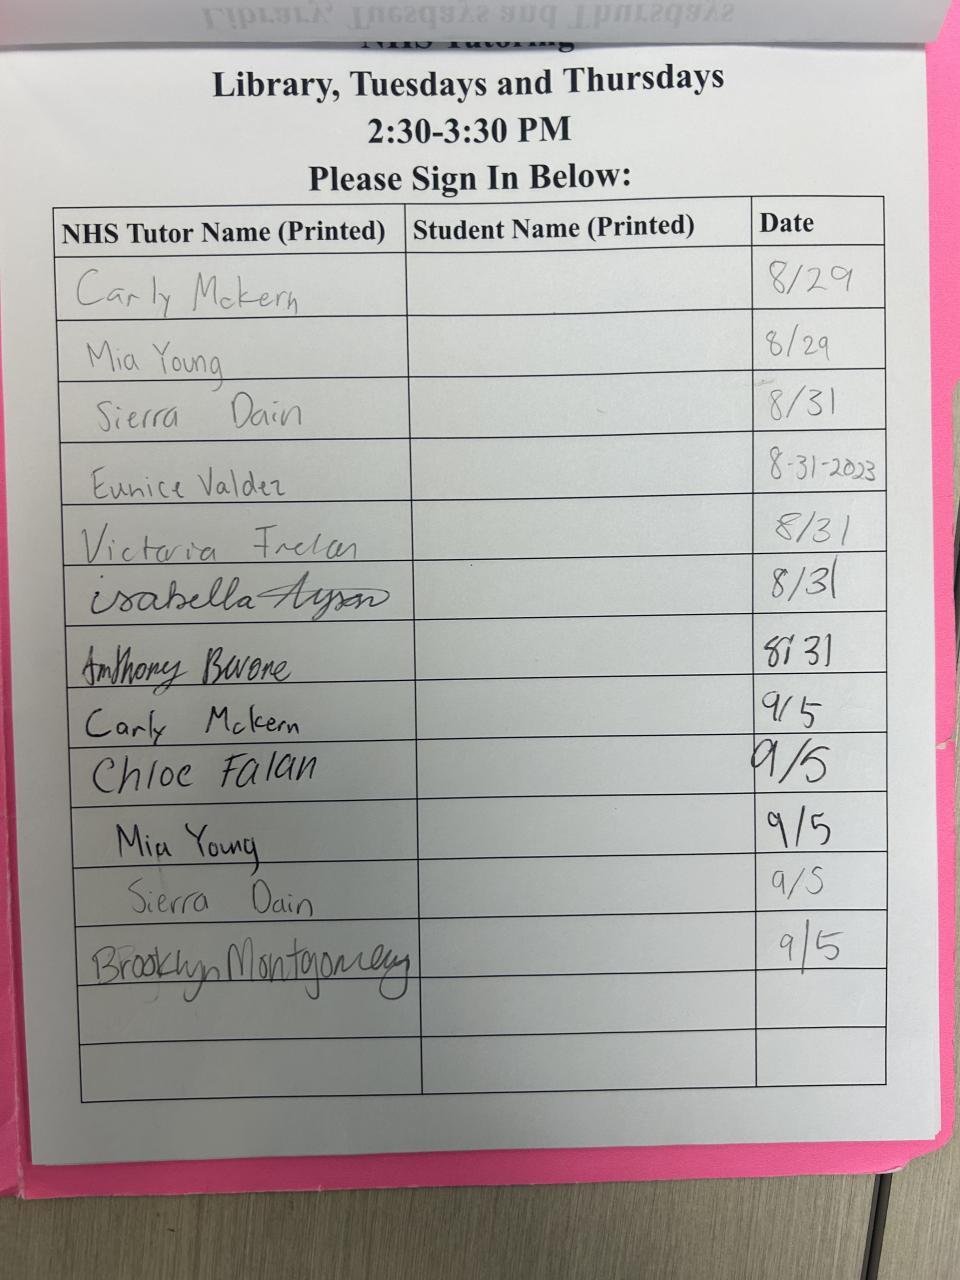 Library, Tuesdays and Thursdays
NHS Tutoring
Library, Tuesdays and Thursdays
2:30-3:30 PM
Please Sign In Below:
NHS Tutor Name (Printed) Student Name (Printed) Date
Carly McKern 8/29
Mia Young 8/29
Sierra Dain 8/31
Eunice Valdez 8-31-2023
Victoria 8/31
isabella Ayson 8/31
Anthony 8/31
Carly McKern 9/5
Chloe Falan 9/5
Mia Young 9/5
Sierra Dain 9/5
Brooklyn Montgomery 9/5